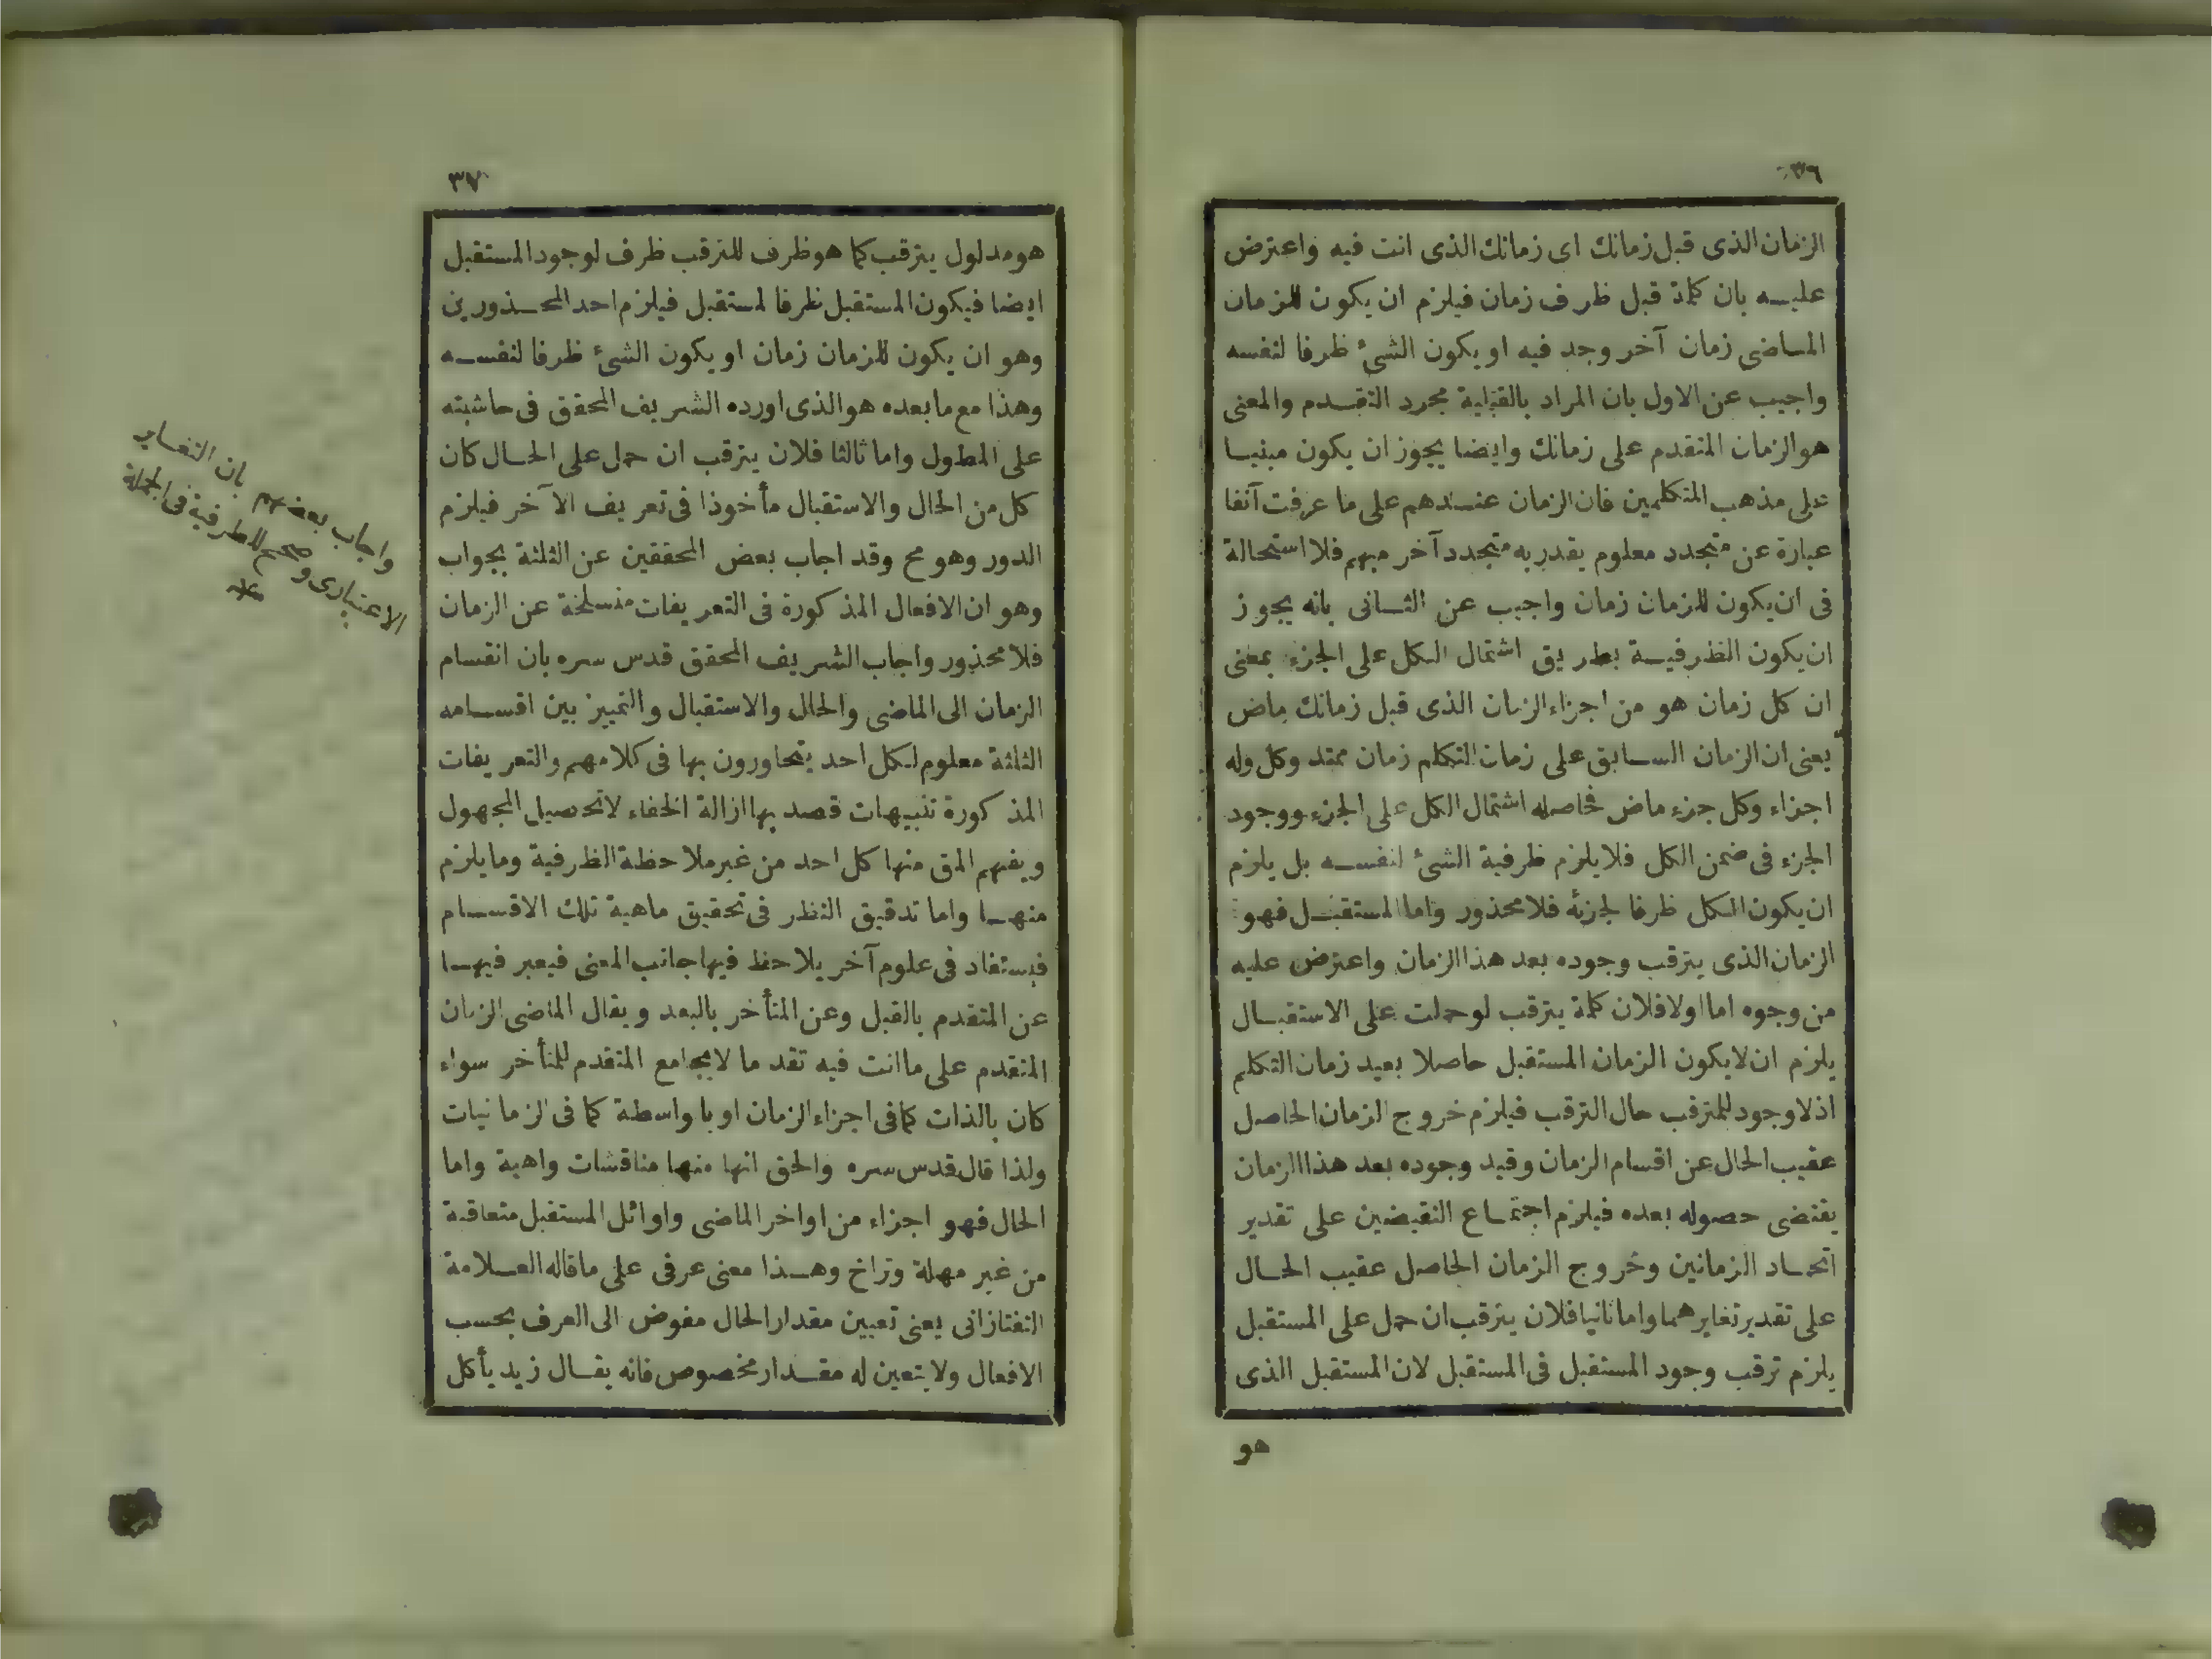 ٣٦
الزمان الذى قبل زمانك اى زمانك الذى انت فيه واعترض
عليه بان كلمة قبل ظرف زمان فيلزم ان يكون للزمان
الماضى زمان آخر وجد فيه او يكون الشئ ظرفا لنفسه
واجيب عن الاول بان المراد بالقبلية مجرد التقدم والمعنى
هو الزمان المتقدم على زمانك وايضا يجوز ان يكون مبنيا
على مذهب المتكلمين فان الزمان عندهم على ما عرفت آنفا
عبارة عن متجدد معلوم يقدر به متجدد آخر مبهم فلا استحالة
فى ان يكون للزمان زمان واجيب عن الثانى بانه يجوز
ان يكون الظرفية بطريق اشتمال الكل على الجزء بمعنى
ان كل زمان هو من اجزاء الزمان الذى قبل زمانك ماض
يعنى ان الزمان السابق على زمان التكلم زمان ممتد وكل وله
اجزاء وكل جزء ماض فحاصله اشتمال الكل على الجزء ووجود
الجزء فى ضمن الكل فلا يلزم ظرفية الشئ لنفسه بل يلزم
ان يكون الكل ظرفا لجزئه فلا محذور واما المستقبل فهو
الزمان الذى يترقب وجوده بعد هذا الزمان واعترض عليه
من وجوه اما اولا فلان كلمة يترقب لو حملت على الاستقبال
يلزم ان لا يكون الزمان المستقبل حاصلا بعيد زمان التكلم
اذ لا وجود للمترقب حال الترقب فيلزم خروج الزمان الحاصل
عقيب الحال عن اقسام الزمان وقيد وجوده بعد هذا الزمان
يقتضى حصوله بعده فيلزم اجتماع النقيضين على تقدير
اتحاد الزمانين وخروج الزمان الحاصل عقيب الحال
على تقدير تغايرهما واما ثانيا فلان يترقب ان حمل على المستقبل
يلزم ترقب وجود المستقبل فى المستقبل لان المستقبل الذى
هو
٣٧
هو مدلول يترقب كما هو ظرف للترقب ظرف لوجود المستقبل
ايضا فيكون المستقبل ظرفا لمستقبل فيلزم احد المحذورين
وهو ان يكون للزمان زمان او يكون الشئ ظرفا لنفسه
وهذا مع ما بعده هو الذى اورده الشريف المحقق فى حاشيته
على المطول واما ثالثا فلان يترقب ان حمل على الحال كان
كل من الحال والاستقبال مأخوذا فى تعريف الآخر فيلزم
الدور وهو مح وقد اجاب بعض المحققين عن الثلثة بجواب
وهو ان الافعال المذكورة فى التعريفات منسلخة عن الزمان
فلا محذور واجاب الشريف المحقق قدس سره بان انقسام
الزمان الى الماضى والحال والاستقبال والتمييز بين اقسامه
الثلثة معلوم لكل احد يتحاورون بها فى كلامهم والتعريفات
المذكورة تنبيهات قصد بها ازالة الخفاء لا تحصيل المجهول
ويفهم المق منها كل احد من غير ملاحظة الظرفية وما يلزم
منها واما تدقيق النظر فى تحقيق ماهية تلك الاقسام
فيستفاد فى علوم آخر يلاحظ فيها جانب المعنى فيعبر فيها
عن المتقدم بالقبل وعن المتأخر بالبعد ويقال الماضى الزمان
المتقدم على ما انت فيه تقدما لا يجامع المتقدم للمتأخر سواء
كان بالذات كما فى اجزاء الزمان او با واسطة كما فى الزمانيات
ولذا قال قدس سره والحق انها منها مناقشات واهية واما
الحال فهو اجزاء من اواخر الماضى واوائل المستقبل متعاقبة
من غير مهلة وتراخ وهذا معنى عرفى على ما قاله العلامة
التفتازانى يعنى تعيين مقدار الحال مفوض الى العرف بحسب
الافعال ولا يتعين له مقدار مخصوص فانه يقال زيد يأكل
واجاب بعضهم بان التغاير
الاعتبارى مصحح للظرفية فى الجملة